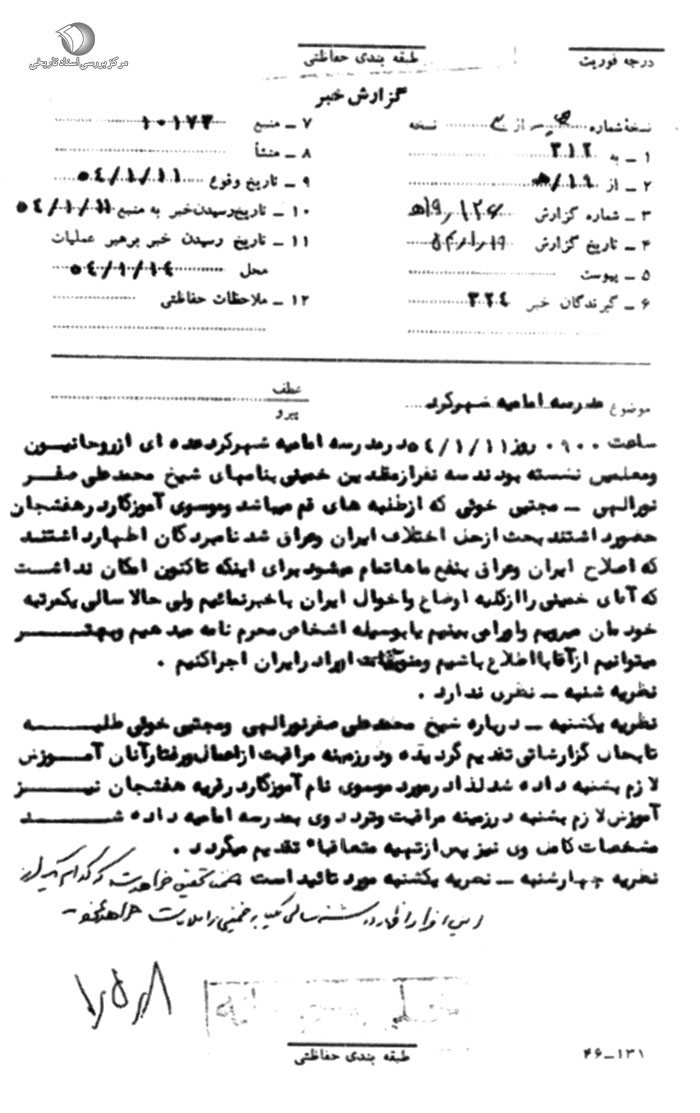 مرکز بررسی اسناد تاریخی
درجه فوریت
طبقه بندی حفاظتی
گزارش خبر
نسخهٔ شماره از نسخه
۱ ـ به ۳۱۲
۲ ـ از ۱۹/ه‍
۳ ـ شماره گزارش ۱۹/۱۲۶ه‍
۴ ـ تاریخ گزارش ۵۴/۱/۱۹
۵ ـ پیوست
۶ ـ گیرندگان خبر ۳۲۴
۷ ـ منبع ۱۰۱۷۳
۸ ـ منشأ
۹ ـ تاریخ وقوع ۵۴/۱/۱۱
۱۰ ـ تاریخ رسیدن خبر به منبع ۵۴/۱/۱۱
۱۱ ـ تاریخ رسیدن خبر برهبر عملیات
محل ۵۴/۱/۱۴
۱۲ ـ ملاحظات حفاظتی
موضوع مدرسه امامیه شهرکرد
عطف
پیرو
ساعت ۰۹۰۰ روز ۵۴/۱/۱۱ در مدرسه امامیه شهرکرد عده ای از روحانیون
و معلمین نشسته بودند سه نفر از مقلدین خمینی بنامهای شیخ محمدعلی صفر
نورالهی ـ مجتبی خوئی که از طلبه های قم میباشد و موسوی آموزگار در هفشجان
حضور داشتند بحث از حل اختلاف ایران و عراق شد نامبردگان اظهار داشتند
که اصلاح ایران و عراق بنفع ماها تمام میشود برای اینکه تاکنون امکان نداشت
که آقای خمینی را از کلیه اوضاع و احوال ایران با خبر نمائیم ولی حالا سالی یکمرتبه
خودمان میرویم و اورا می بینیم یا بوسیله اشخاص محرم نامه میدهیم و بهتر
میتوانیم از آقا با اطلاع باشیم و منویات او را در ایران اجرا کنیم .
نظریه شنبه ـ نظری ندارد .
نظریه یکشنبه ـ درباره شیخ محمدعلی صفر نورالهی و مجتبی خوئی طلبه
تا بحال گزارشاتی تقدیم گردیده و در زمینه مراقبت از اعمال و رفتار آنان آموزش
لازم بشنبه داده شد لذا در مورد موسوی نام آموزگار در قریه هفشجان نیز
آموزش لازم بشنبه در زمینه مراقبت و تردد وی بمدرسه امامیه داده شد
مشخصات کامل وی نیز پس از تهیه متعاقباً تقدیم میگردد .
نظریه چهارشنبه ـ نظریه یکشنبه مورد تائید است ضمناً تحقیق خواهد شد که کدام یک از
این افراد در گذشته سالی یکبار خمینی را ملاقات
طبقه بندی حفاظتی
۴۶ـ۱۳۱